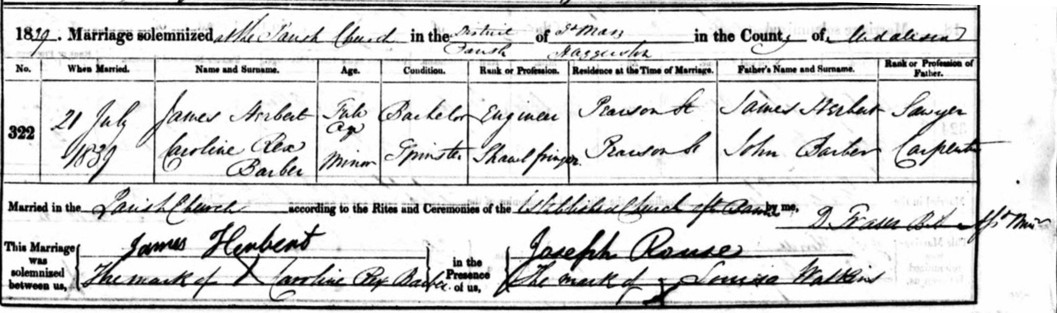 1839. Marriage solemnized at the Parish Church in the District Parish of St Mary Haggerston in the County of Middlesex
No. When Married. Name and Surname. Age. Condition. Rank or Profession. Residence at the Time of Marriage. Father's Name and Surname. Rank or Profession of Father.
322 21 July 1839 James Herbert Full Age Bachelor Engineer Pearson St James Herbert Sawyer
Caroline Rex Barber Minor Spinster Shawl fringer Pearson St John Barber Carpenter
Married in the Parish Church according to the Rites and Ceremonies of the Established Church by me,
This Marriage was solemnized between us, James Herbert in the Presence of us, Joseph Rouse
The mark of X Caroline Rex Barber The mark of X Louisa Watkins